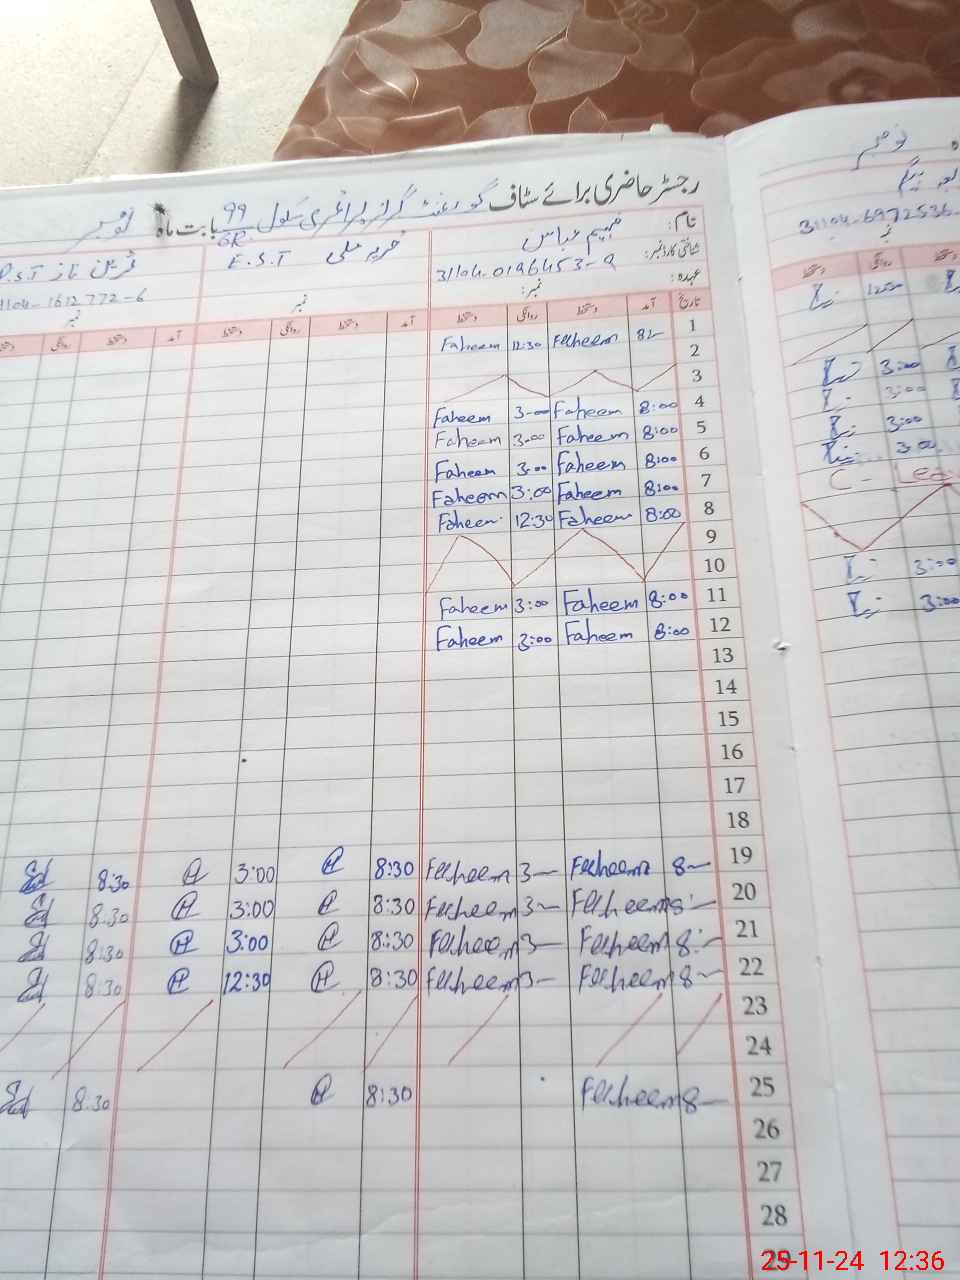 رجسٹر حاضری برائے سٹاف گورنمنٹ گرلز پرائمری سکول 99 6R بابت ماہ نومبر
نام: فہیم عباس
شناختی کارڈ نمبر: 31104-0196453-9
عہدہ: نمبر:
علی E.S.T
ناز P.S.T
1104-1612772-6
نمبر
نومبر
31104-6972536-
تاریخ آمد دستخط روانگی دستخط آمد دستخط روانگی دستخط آمد دستخط روانگی
1 8 Faheem 12:30 Faheem
2
3
4 8:00 Faheem 3-00 Faheem
5 8:00 Faheem 3:00 Faheem
6 8:00 Faheem 3:00 Faheem
7 8:00 Faheem 3:00 Faheem
8 8:00 Faheem 12:30 Faheem
9
10
11 8:00 Faheem 3:00 Faheem
12 8:00 Faheem 3:00 Faheem
13
14
15
16
17
18
19 8- Faheem 3- Faheem 8:30 3:00 8:30
20 8- Faheem 3- Faheem 8:30 3:00 8:30
21 8:- Faheem 3- Faheem 8:30 3:00 8:30
22 8- Faheem 3- Faheem 8:30 12:30 8:30
23
24
25 8- Faheem 8:30 8:30
26
27
28
29
3:00
3:00
3:00
3:00
C- Leave
3:00
3:00
25-11-24 12:36